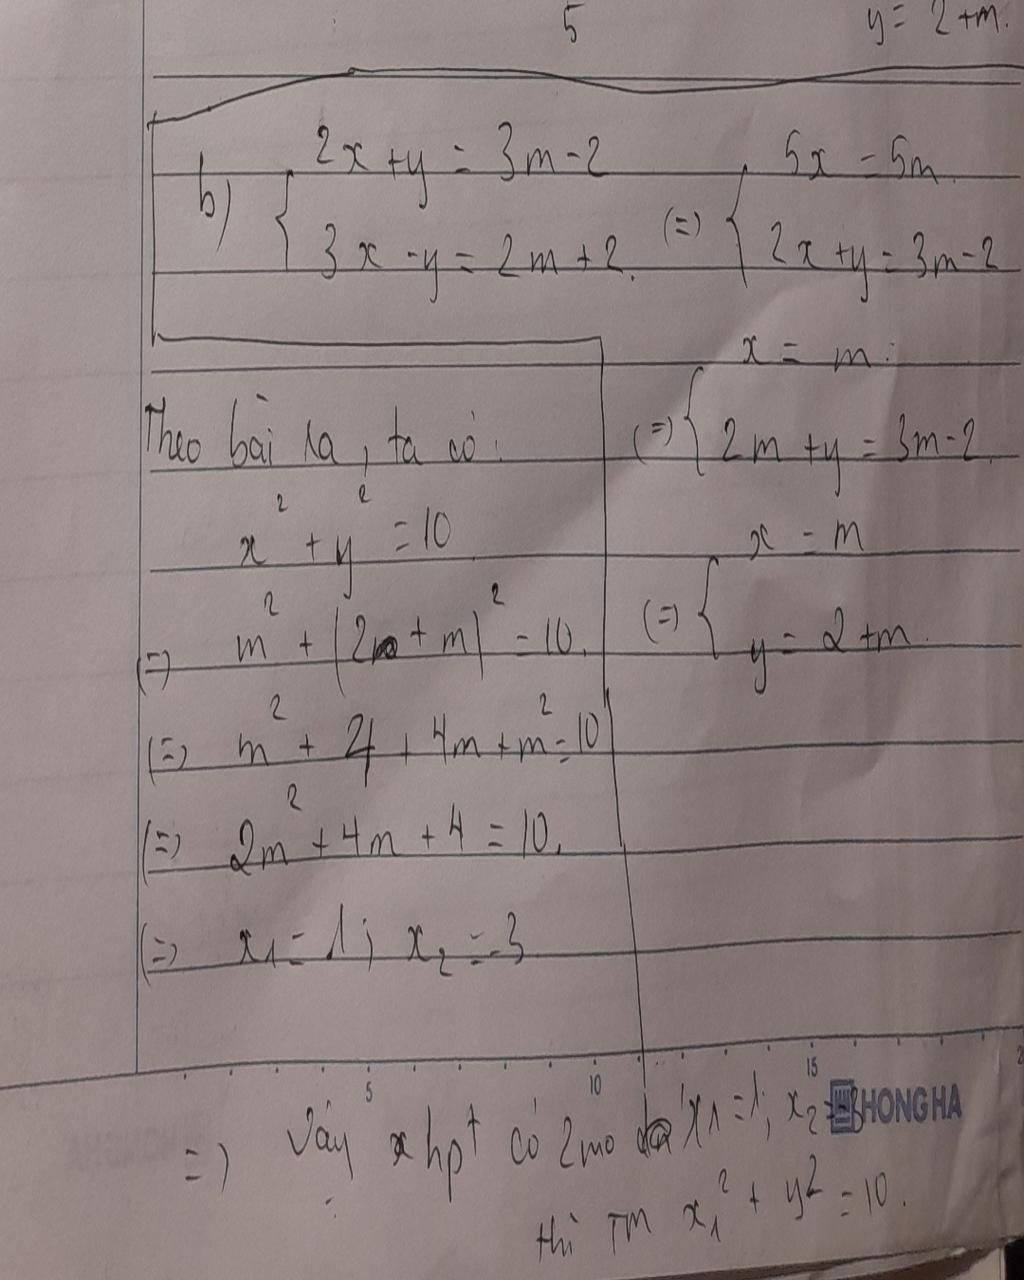 5 y = 2 + m.
b) { 2x + y = 3m - 2 (=) { 5x = 5m.
3x - y = 2m + 2. 2x + y = 3m - 2
(=) { x = m.
2m + y = 3m - 2.
(=) { x = m
y = 2 + m.
Theo bài ra, ta có:
x² + y² = 10
(=) m² + (2 + m)² = 10.
(=) m² + 4 + 4m + m² = 10
(=) 2m² + 4m + 4 = 10.
(=) x₁ = 1; x₂ = -3
5 10 15
HONG HA
=) Vậy x hpt có 2 mo x₁ = 1; x₂ = -3
thì TM x₁² + y² = 10.